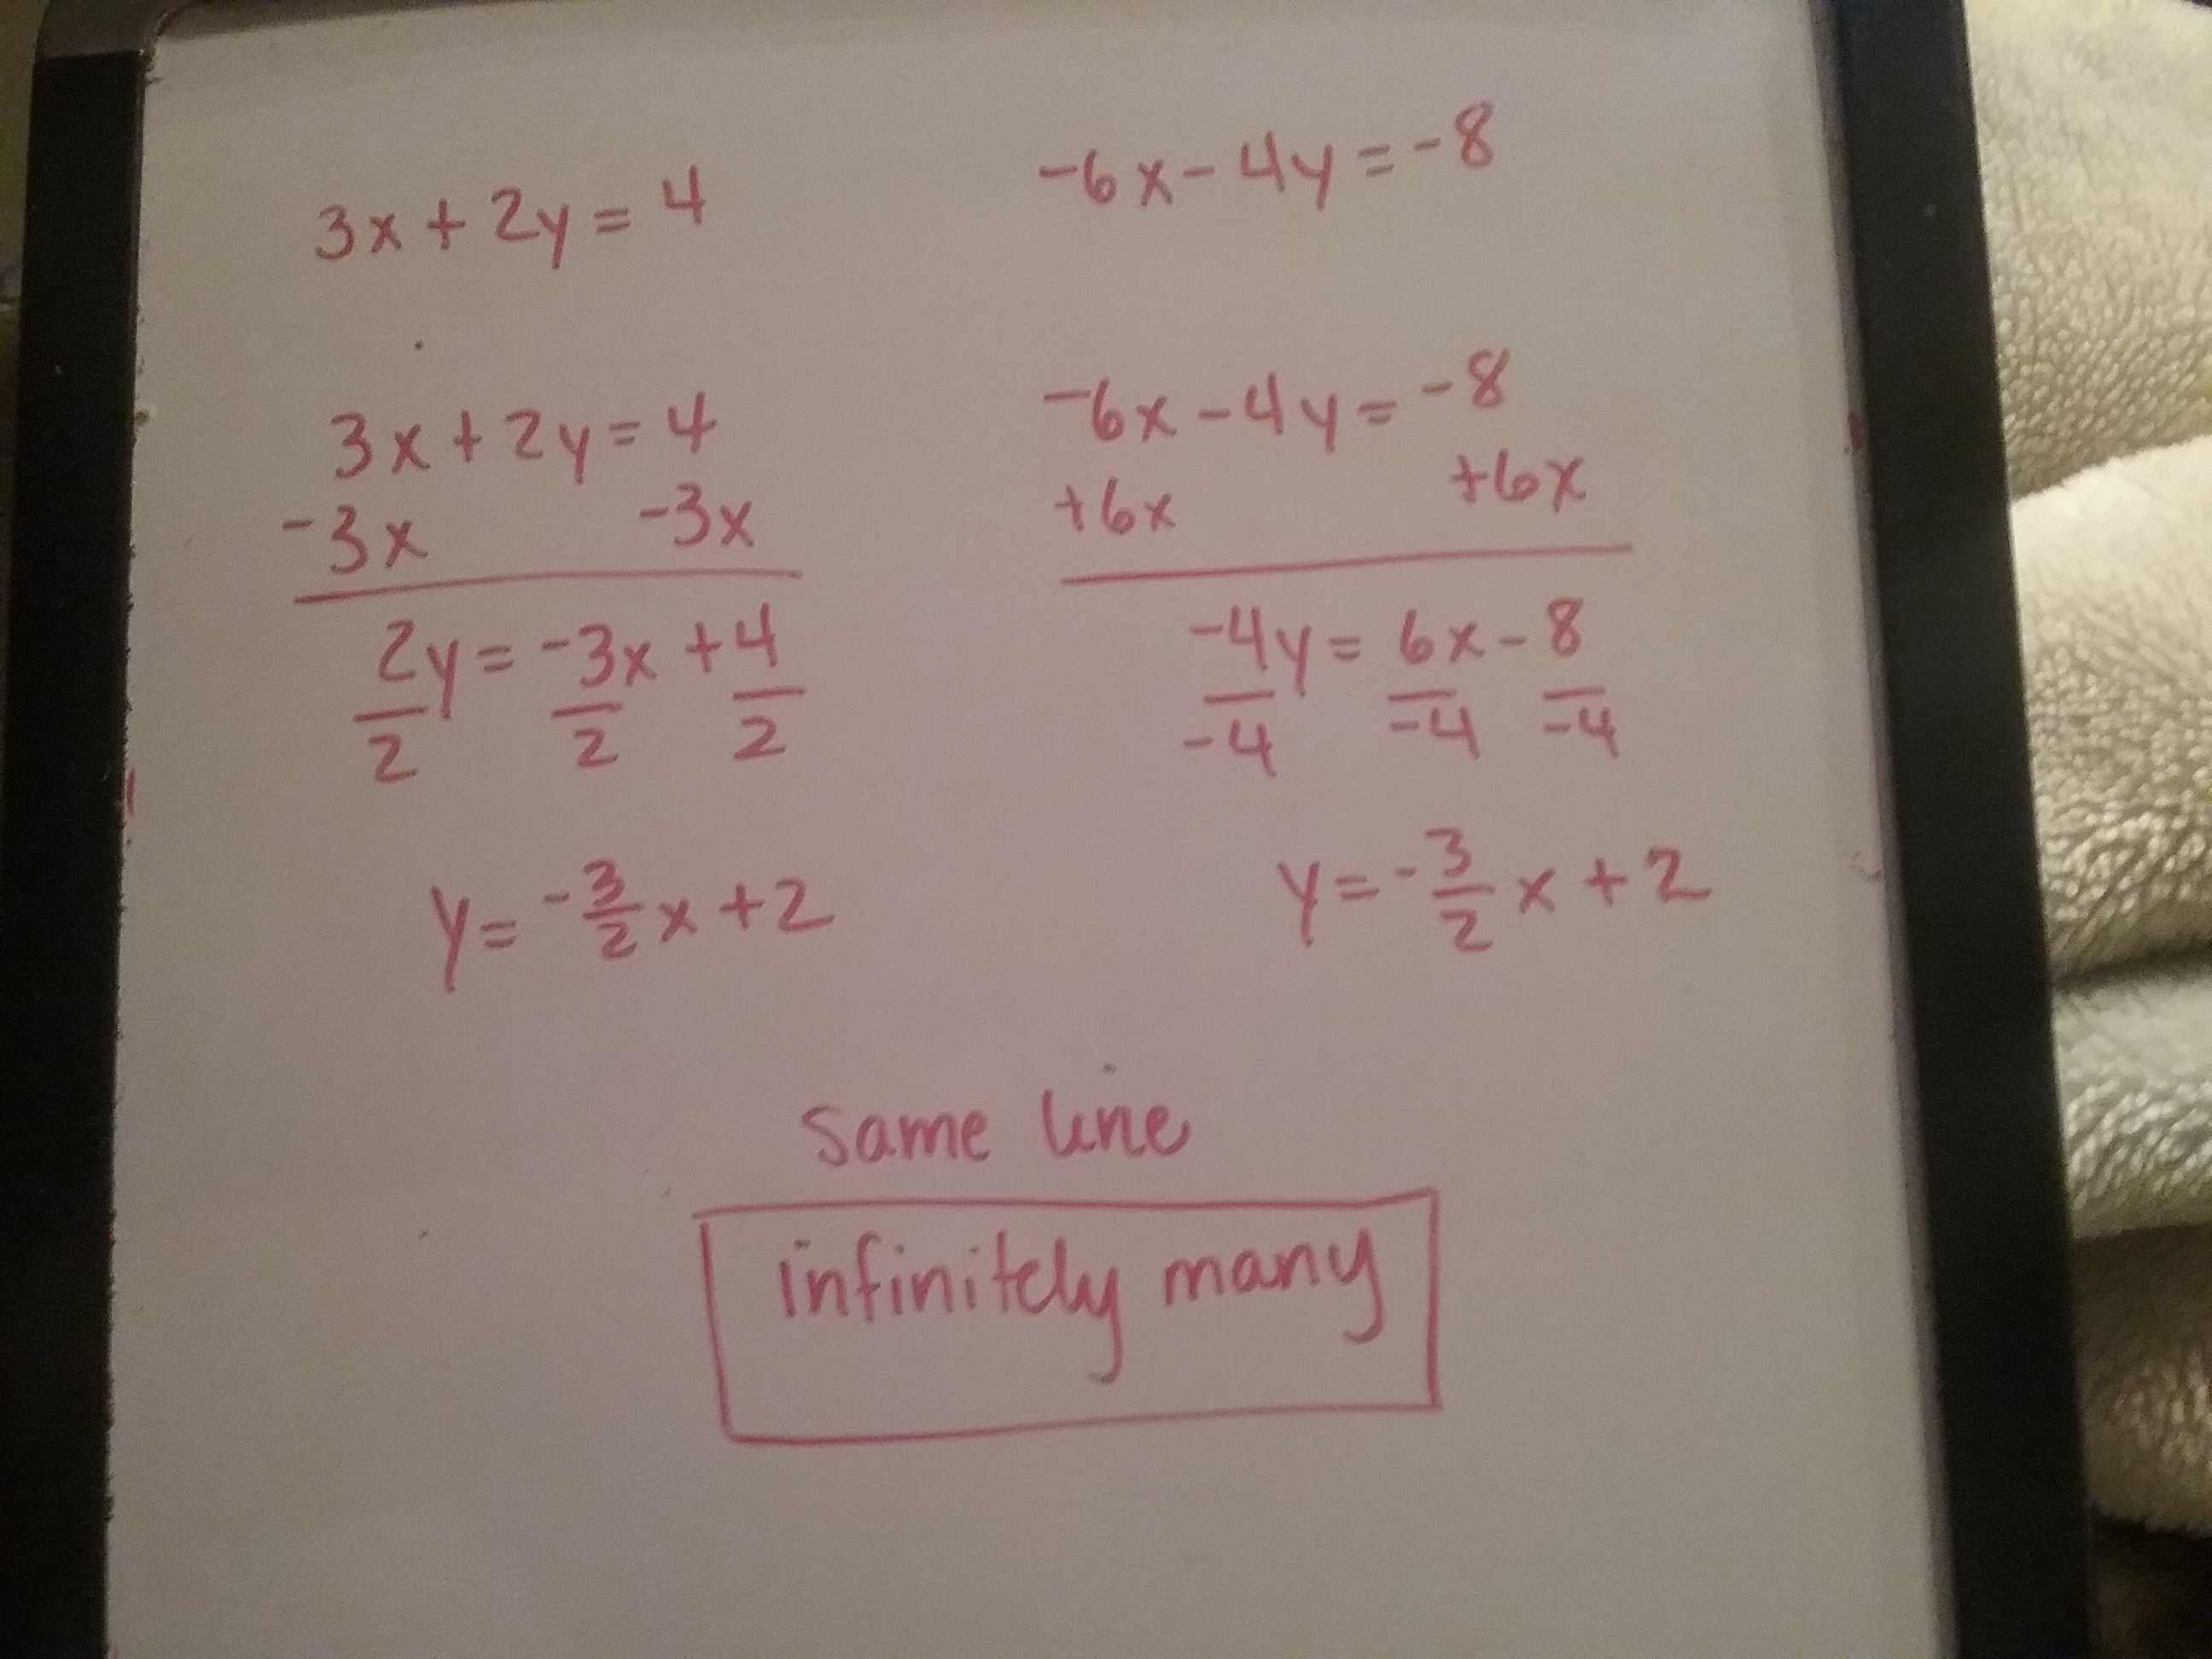 3x + 2y = 4
-6x - 4y = -8
3x + 2y = 4
-3x -3x
2y = -3x + 4
2 2 2
y = -3/2 x + 2
-6x - 4y = -8
+6x +6x
-4y = 6x - 8
-4 -4 -4
y = -3/2 x + 2
same line
infinitely many